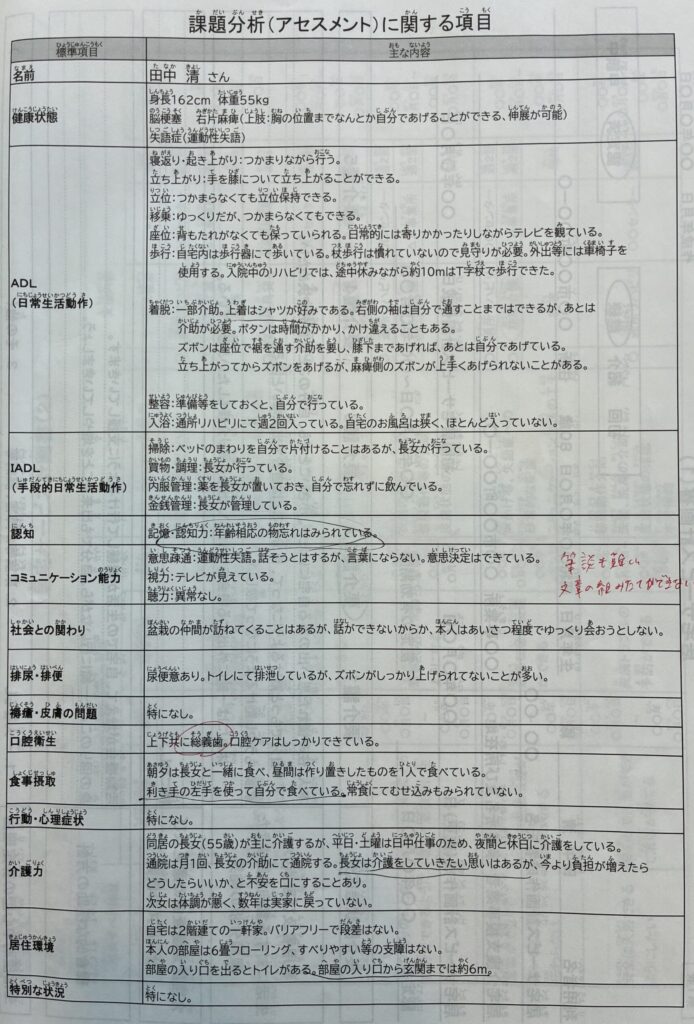 課題分析(アセスメント)に関する項目
標準項目 主な内容
名前 田中 清 さん
健康状態
身長162cm 体重55kg
脳梗塞 右片麻痺(上肢:胸の位置までなんとか自分であげることができる、伸展が可能)
失語症(運動性失語)
ADL
(日常生活動作)
寝返り・起き上がり:つかまりながら行う。
立ち上がり:手を膝について立ち上がることができる。
立位:つかまらなくても立位保持できる。
移乗:ゆっくりだが、つかまらなくてもできる。
座位:背もたれがなくても保っていられる。日常的には寄りかかったりしながらテレビを観ている。
歩行:自宅内は歩行器にて歩いている。杖歩行は慣れていないので見守りが必要。外出等には車椅子を
使用する。入院中のリハビリでは、途中休みながら約10mはT字杖で歩行できた。
着脱:一部介助。上着はシャツが好みである。右側の袖は自分で通すことまではできるが、あとは
介助が必要。ボタンは時間がかかり、かけ違えることもある。
ズボンは座位で裾を通す介助を要し、膝下まであげれば、あとは自分であげている。
立ち上がってからズボンをあげるが、麻痺側のズボンが上手くあげられないことがある。
整容:準備等をしておくと、自分で行っている。
入浴:通所リハビリにて週2回入っている。自宅のお風呂は狭く、ほとんど入っていない。
IADL
(手段的日常生活動作)
掃除:ベッドのまわりを自分で片づけることはあるが、長女が行っている。
買物・調理:長女が行っている。
内服管理:薬を長女が置いておき、自分で忘れずに飲んでいる。
金銭管理:長女が管理している。
認知 記憶・認知力:年齢相応の物忘れはみられている。
コミュニケーション能力
意思疎通:運動性失語。話そうとはするが、言葉にならない。意思決定はできている。
視力:テレビが見えている。
聴力:異常なし。
筆談も難しい
文章の組みたてができない
社会との関わり 盆栽の仲間が訪ねてくることはあるが、話ができないからか、本人はあいさつ程度でゆっくり会おうとしない。
排尿・排便 尿便意あり。トイレにて排泄しているが、ズボンがしっかり上げられてないことが多い。
褥瘡・皮膚の問題 特になし。
口腔衛生 上下共に総義歯。口腔ケアはしっかりできている。
食事摂取
朝夕は長女と一緒に食べ、昼間は作り置きしたものを1人で食べている。
利き手の左手を使って自分で食べている。常食にてむせ込みもみられていない。
行動・心理症状 特になし。
介護力
同居の長女(55歳)が主に介護するが、平日・土曜は日中仕事のため、夜間と休日に介護をしている。
通院は月1回、長女の介助にて通院する。長女は介護をしていきたい思いはあるが、今より負担が増えたら
どうしたらいいか、と不安を口にすることあり。
次女は体調が悪く、数年は実家に戻っていない。
居住環境
自宅は2階建ての一軒家。バリアフリーで段差はない。
本人の部屋は6畳フローリング、すべりやすい等の支障はない。
部屋の入り口を出るとトイレがある。部屋の入り口から玄関までは約6m。
特別な状況 特になし。